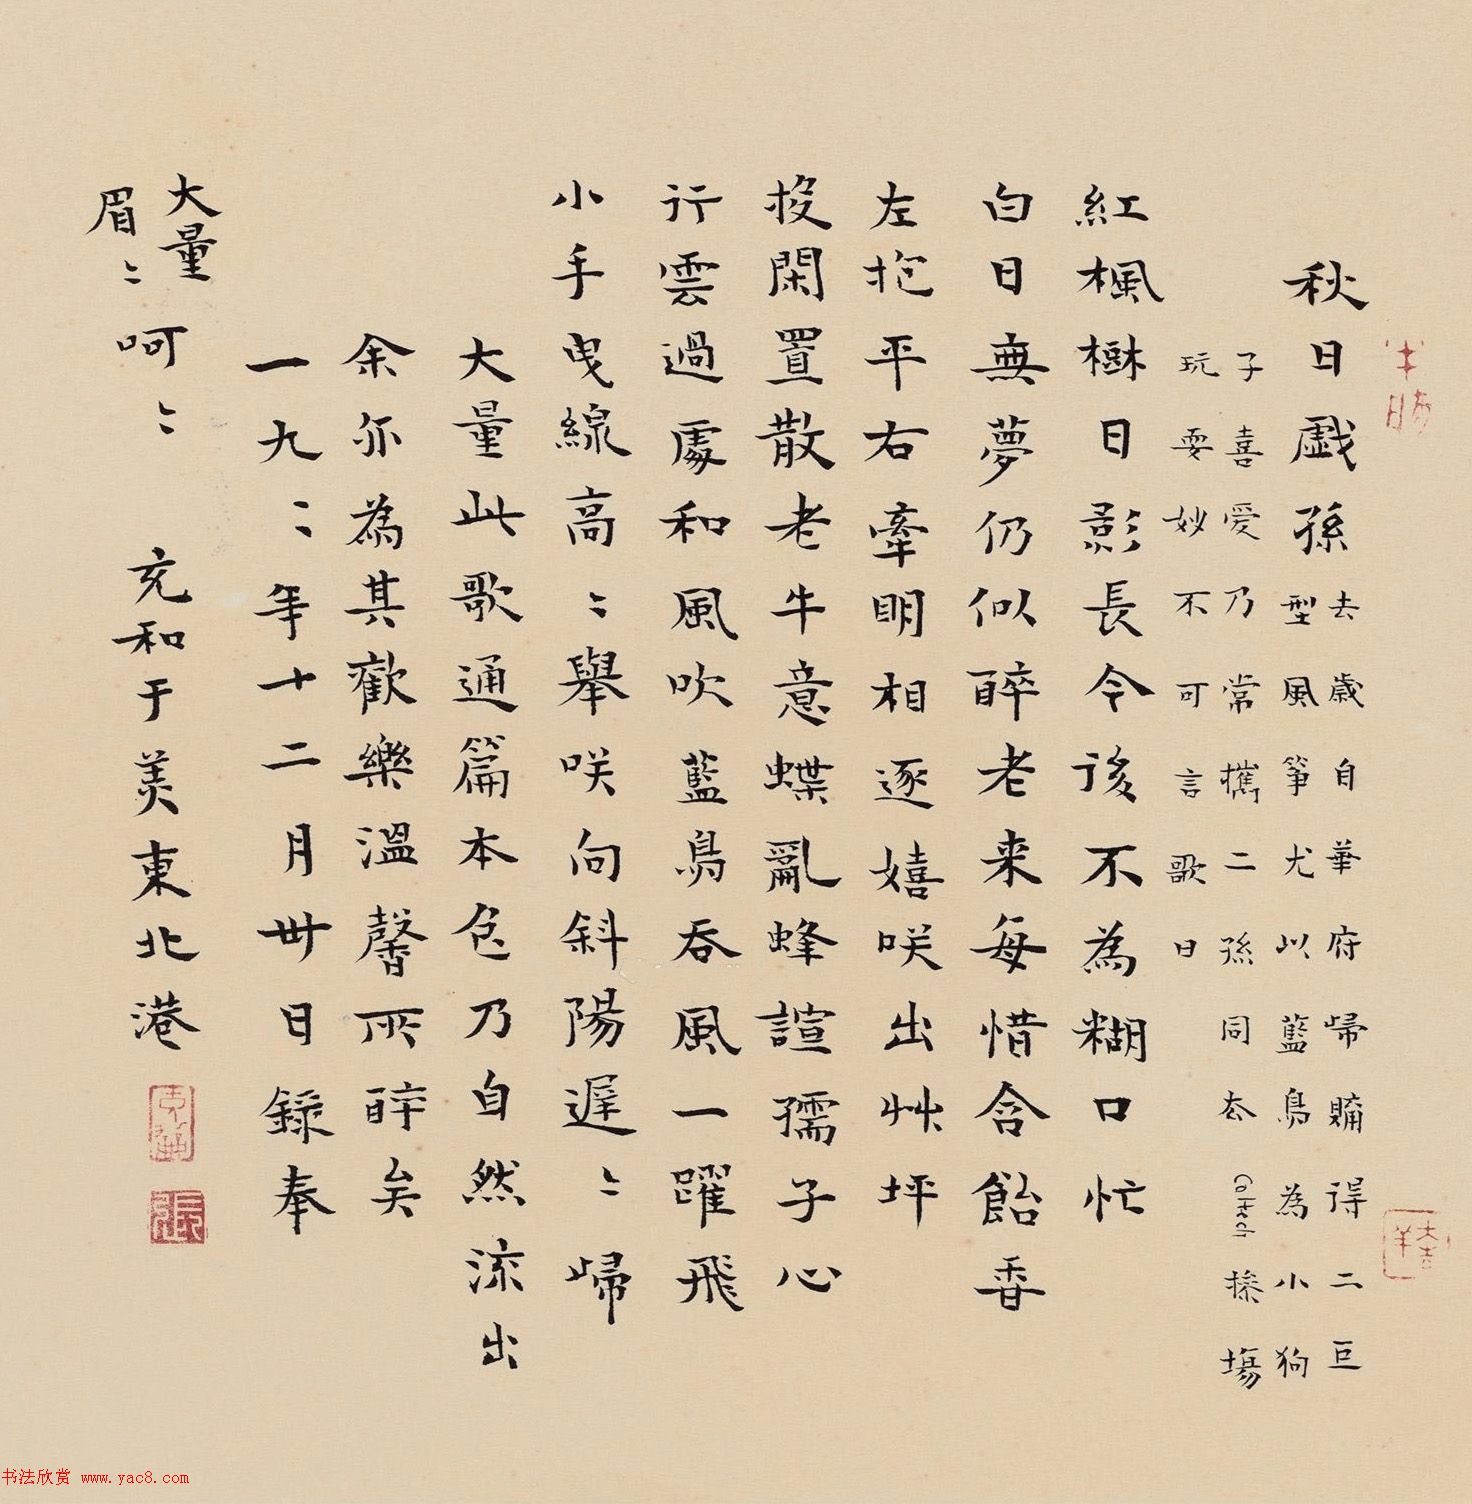 秋日戲孫
去歲自華府歸購得二巨
型風箏尤以藍鳥為小狗
子喜愛乃常攜二孫同去 Coltech 操場
玩耍妙不可言歌曰
紅楓樹日影長今後不為糊口忙
白日無夢仍似醉老来每惜含飴香
左抱平右牽明相逐嬉咲出艸坪
投閑置散老牛意蝶亂蜂諠孺子心
行雲過處和風吹藍鳥吞風一躍飛
小手曳線高〻舉咲向斜陽遲〻歸
大量此歌通篇本色乃自然流出
余亦為其歡樂溫馨所醉矣
一九〻〻年十二月卅日錄奉
大量
眉〻呵〻 充和于美東北港
书法欣赏 www.yac8.com